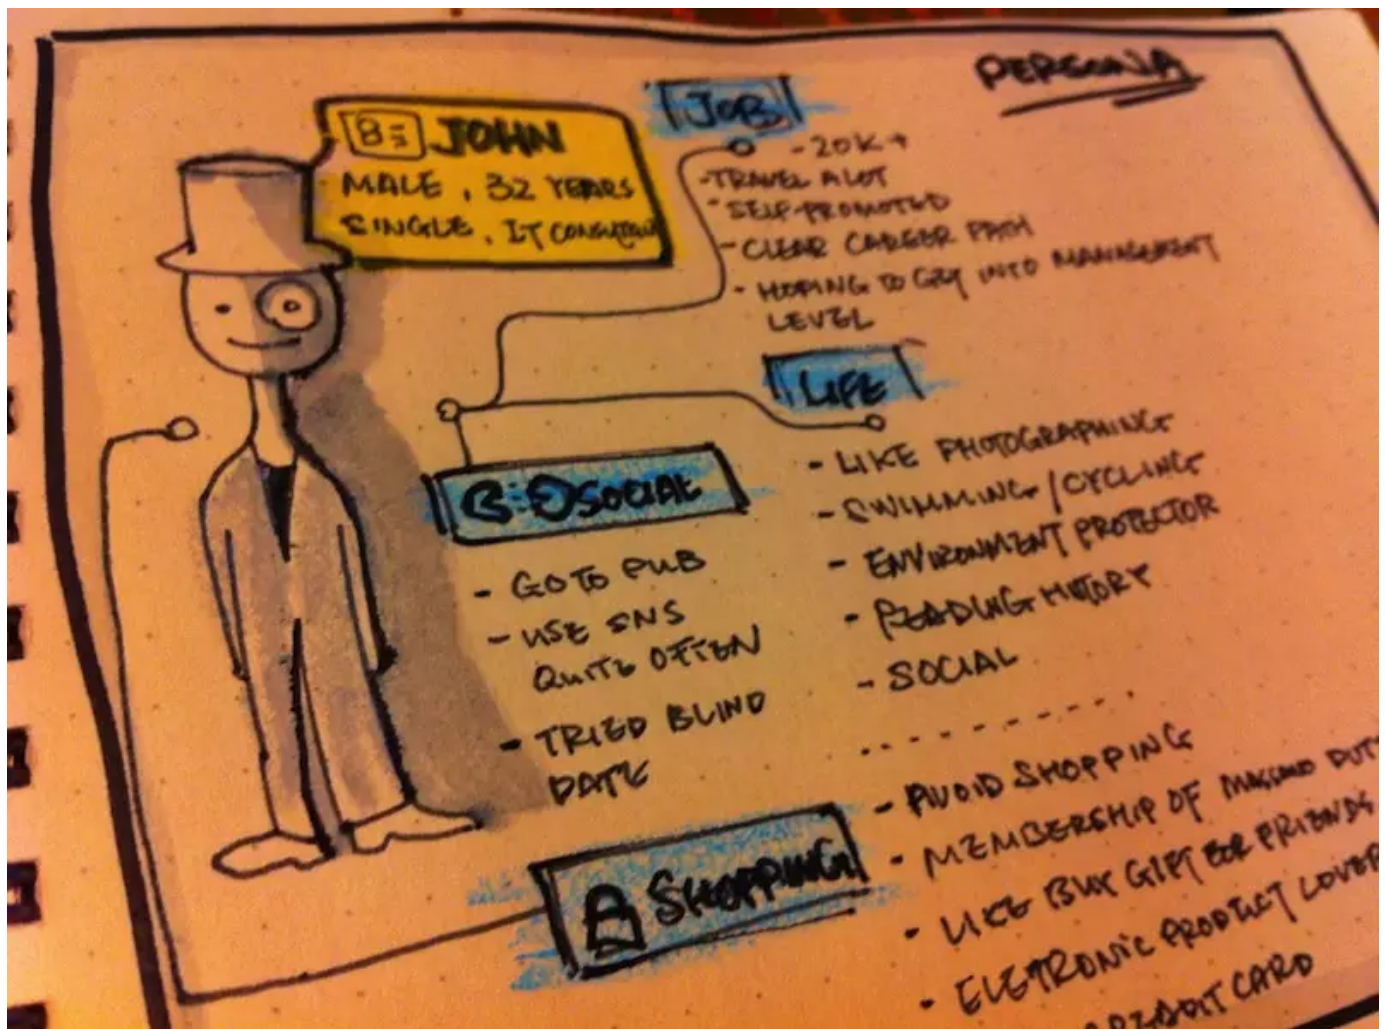 PERSONA
JOHN
MALE, 32 YEARS
SINGLE, IT
JOB
- 20K+
- TRAVEL A LOT
- SELF-PROMOTED
- CLEAR CAREER PATH
- HOPING TO GET INTO MANAGEMENT
LEVEL
LIFE
- LIKE PHOTOGRAPHING
- SWIMMING/CYCLING
- ENVIRONMENT PROTECTOR
- READING HISTORY
- SOCIAL
SOCIAL
- GO TO PUB
- USE SNS
QUITE OFTEN
- TRIED BLIND
DATE
SHOPPING
- AVOID SHOPPING
- MEMBERSHIP OF MASSIMO DUT
- LIKE BUY GIFT FOR FRIENDS
- ELETRONIC PRODUCT LOVER
CREDIT CARD